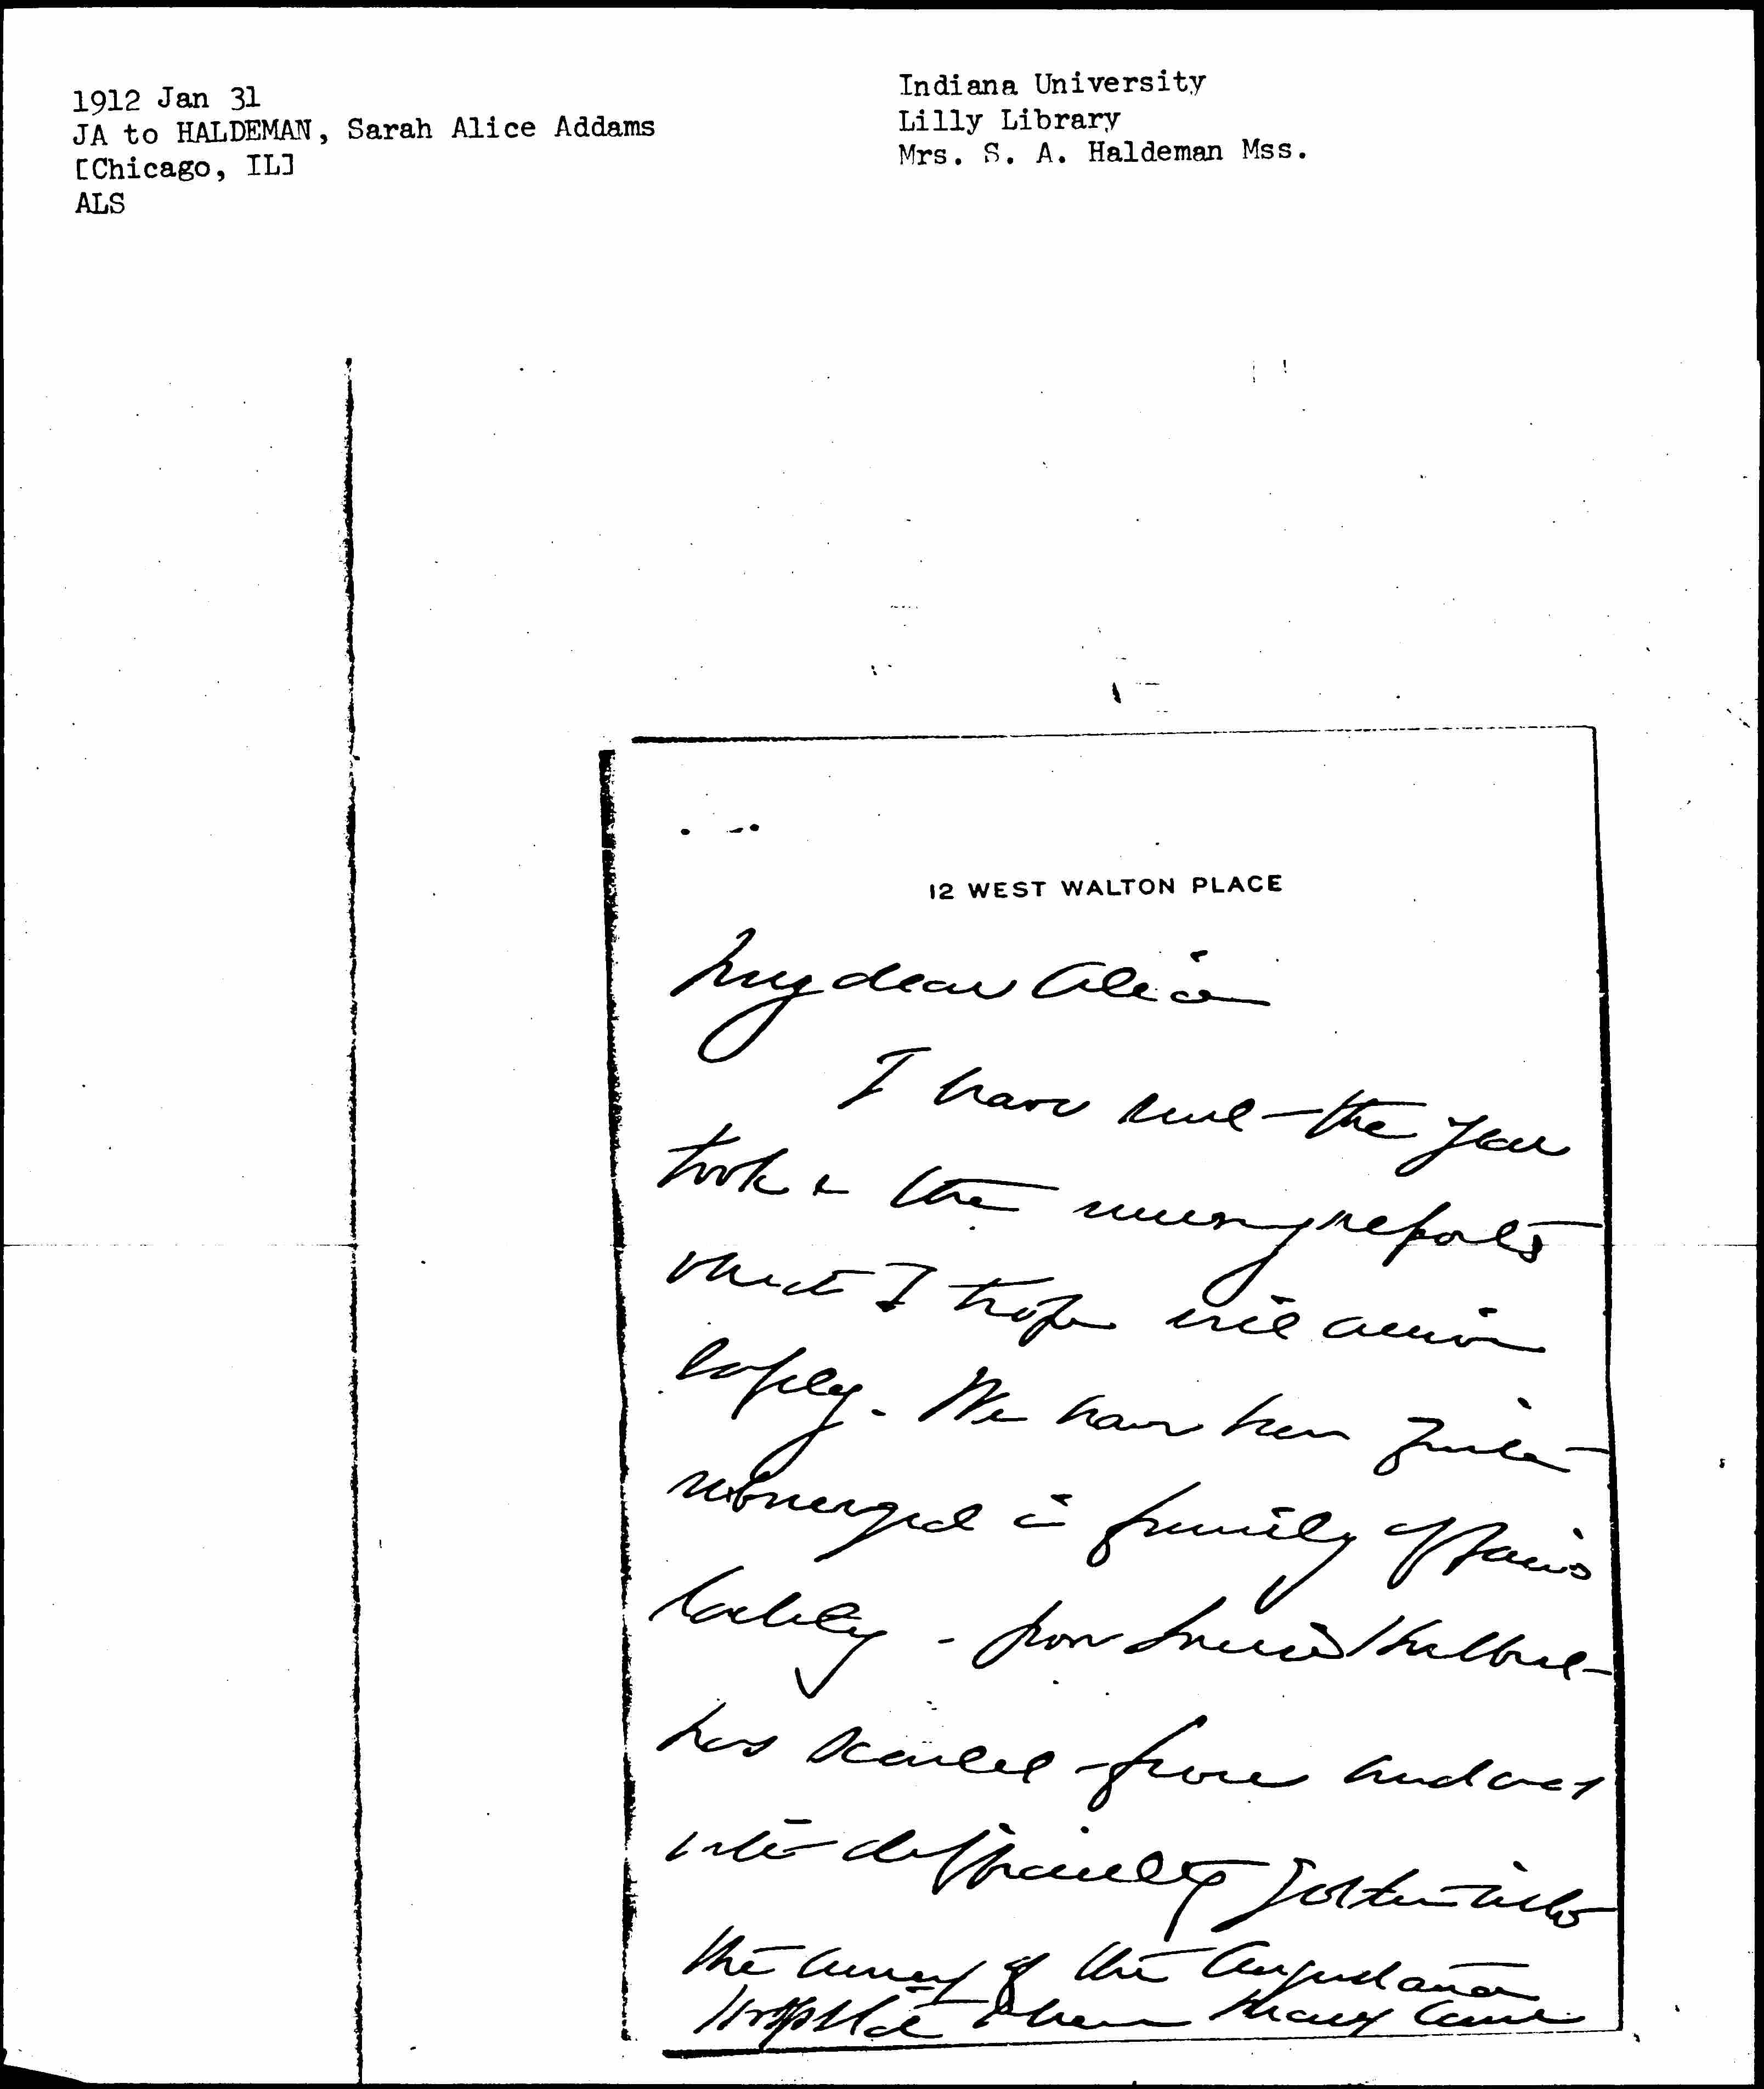 1912 Jan 31
JA to HALDEMAN, Sarah Alice Addams
[Chicago, IL]
ALS
Indiana University
Lilly Library
Mrs. S. A. Haldeman Mss.
12 WEST WALTON PLACE
My dear Alice
I have sent the Year
book & the reports
which I hope will arrive
safely. We have been quite
submerged in family affairs
lately - poor
has from
into difficulty
the of the Augustana
Hospital when Mary came